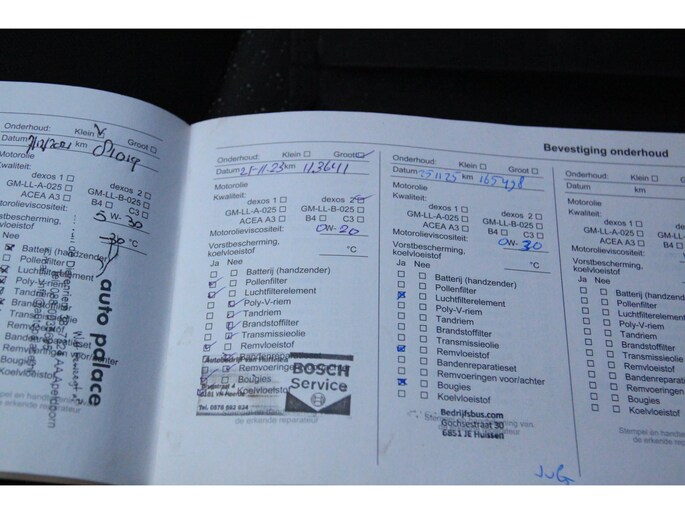 Bevestiging onderhoud
Onderhoud: Klein Groot
Datum km 81019
Motorolie
Kwaliteit: dexos 1
GM-LL-A-025 dexos 2
ACEA A3 GM-LL-B-025
B4 C3
Motorolieviscositeit: 5W-30
Vorstbescherming,
koelvloeistof 30 °C
Ja Nee
Batterij (handzender)
Pollenfilter
Luchtfilterelement
Poly-V-riem
Tandriem
Brandstoffilter
Transmissieolie
Remvloeistof
Bandenreparatieset
Remvoeringen voor/achter
Bougies
Koelvloeistof
auto palace
Apeldoorn
Onderhoud: Klein Groot
Datum 21-11-23 km 113641
Motorolie
Kwaliteit:
dexos 1 dexos 2
GM-LL-A-025 GM-LL-B-025
ACEA A3 B4 C3
Motorolieviscositeit: 0W-20
Vorstbescherming,
koelvloeistof °C
Ja Nee
Batterij (handzender)
Pollenfilter
Luchtfilterelement
Poly-V-riem
Tandriem
Brandstoffilter
Transmissieolie
Remvloeistof
Bandenreparatieset
Remvoeringen
Bougies
Koelvloeistof
Autobedrijf van
BOSCH
Service
de erkende reparateur
Onderhoud: Klein Groot
Datum 25 11 25 km 165498
Motorolie
Kwaliteit:
dexos 1 dexos 2
GM-LL-A-025 GM-LL-B-025
ACEA A3 B4 C3
Motorolieviscositeit: 0W-30
Vorstbescherming,
koelvloeistof °C
Ja Nee
Batterij (handzender)
Pollenfilter
Luchtfilterelement
Poly-V-riem
Tandriem
Brandstoffilter
Transmissieolie
Remvloeistof
Bandenreparatieset
Remvoeringen voor/achter
Bougies
Koelvloeistof
Bedrijfsbus.com
Gochsestraat 30
6851 JE Huissen
de erkende reparateur
Onderhoud: Klein
Datum km
Motorolie
Kwaliteit:
dexos 1
GM-LL-A-025
ACEA A3
Motorolieviscositeit:
Vorstbescherming,
koelvloeistof
Ja Nee
Batterij (handzender)
Pollenfilter
Luchtfilterelement
Poly-V-riem
Tandriem
Brandstoffilter
Transmissieolie
Remvloeistof
Bandenreparatieset
Remvoeringen
Bougies
Koelvloeistof
Stempel en handtekening
de erkende reparateur